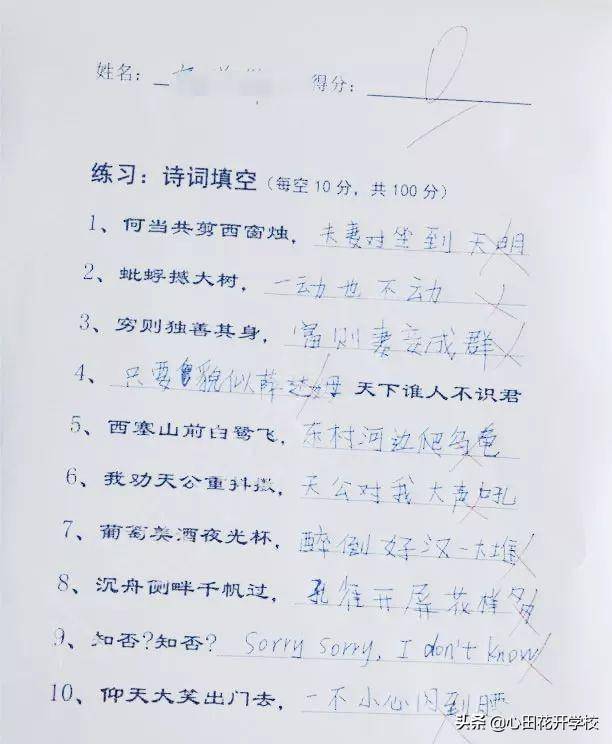 姓名: 得分: 0
练习: 诗词填空 (每空10分,共100分)
1、何当共剪西窗烛, 夫妻对坐到天明
2、蚍蜉撼大树, 一动也不动
3、穷则独善其身, 富则妻妾成群
4、只要貌似薛达姆 天下谁人不识君
5、西塞山前白鹭飞, 东村河边爬乌龟
6、我劝天公重抖擞, 天公对我大声吼
7、葡萄美酒夜光杯, 醉倒好汉一大堆
8、沉舟侧畔千帆过, 孔雀开屏花样多
9、知否?知否? Sorry sorry, I don't know
10、仰天大笑出门去, 一不小心闪到腰
头条 @心田花开学校